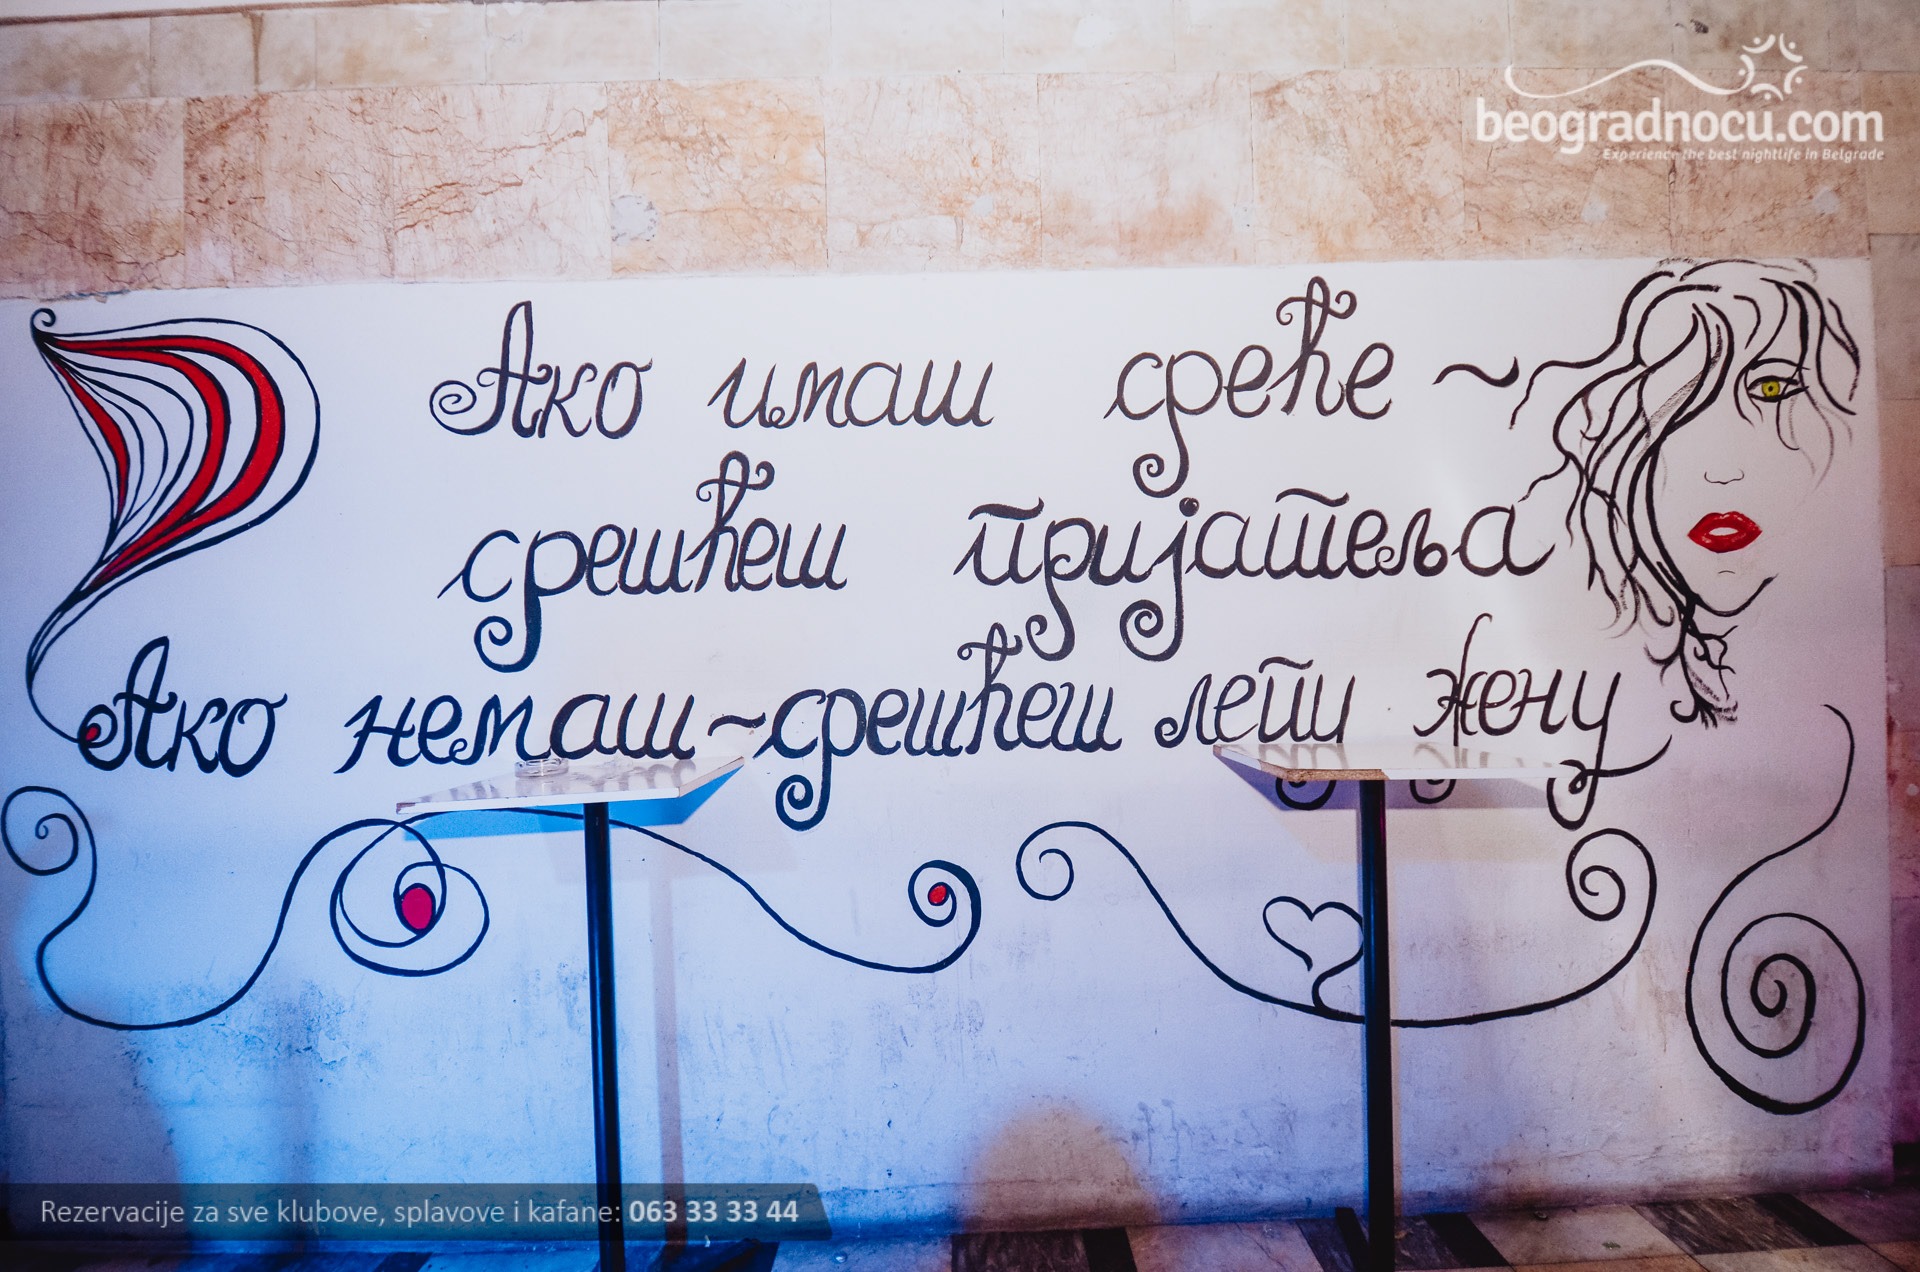 beogradnocu.com
Experience the best nightlife in Belgrade
Ако имаш среће ~
срешћеш пријатеља
Ако немаш ~ срешћеш лепу жену
Rezervacije za sve klubove, splavove i kafane: 063 33 33 44